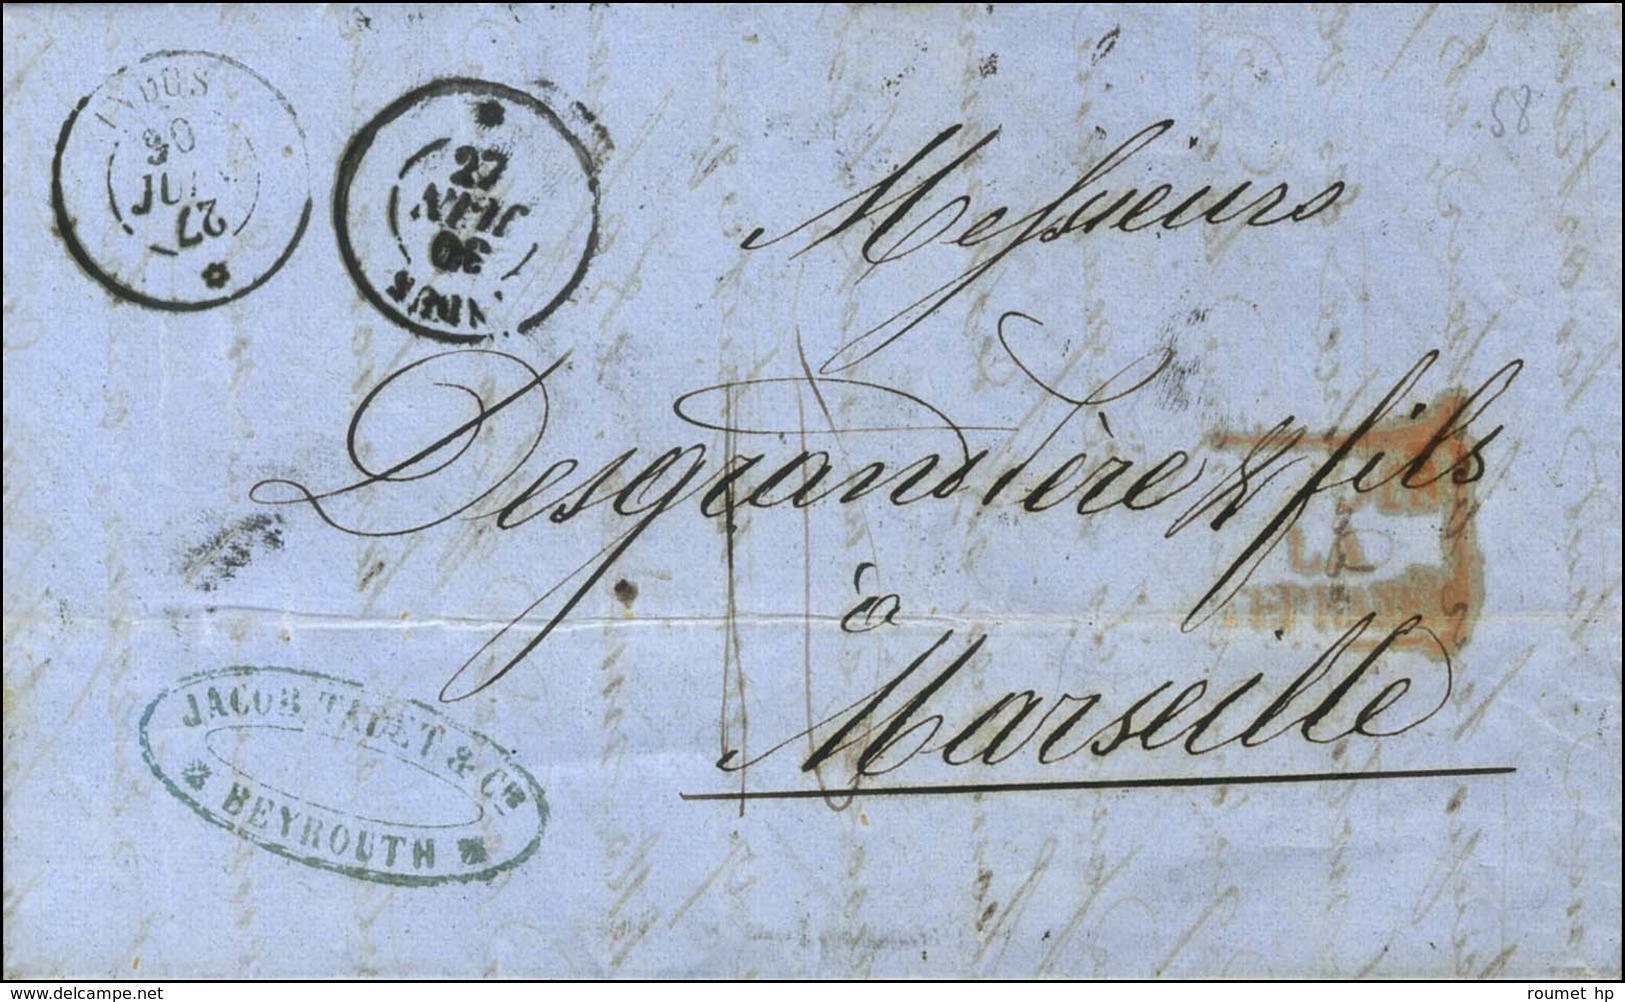 INDUS
30
JUIN
27
27
JUIN
30
INDUS
58
Messieurs
Desgrandière & fils
à
Marseille
LA
JACOB TADET & Cie
BEYROUTH
roumet hp